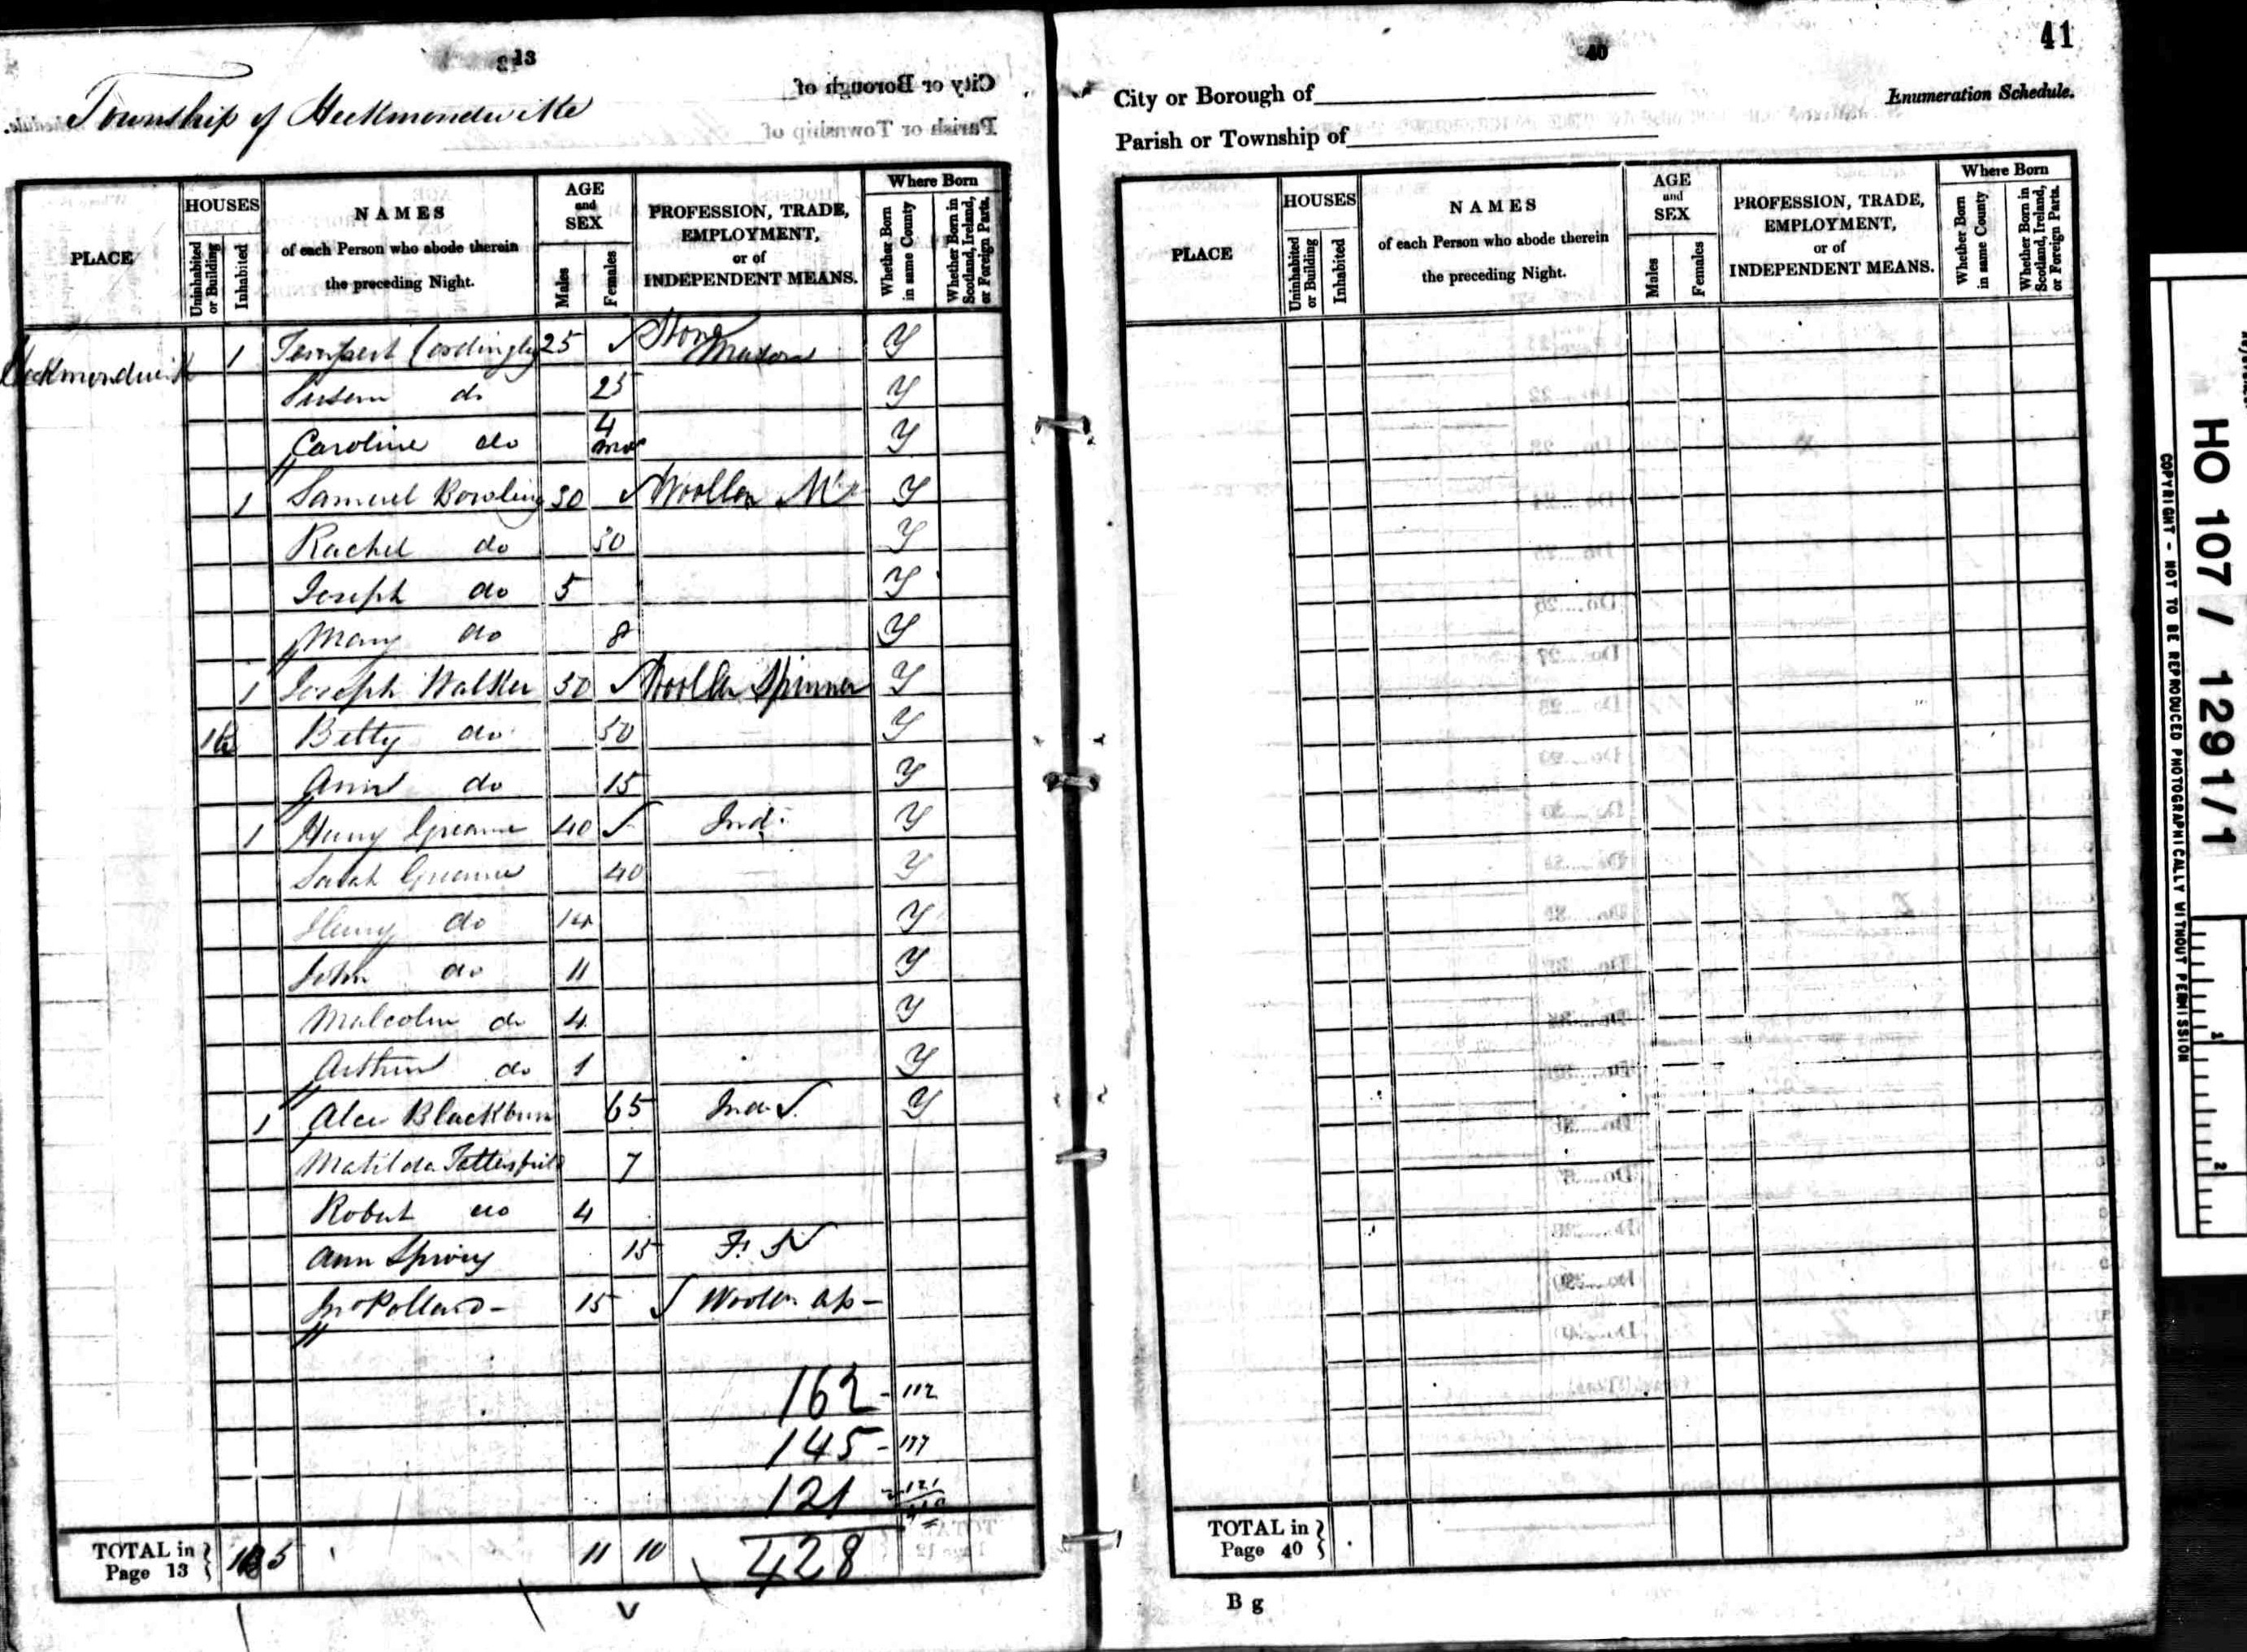 13
Township of Heckmondwike
City or Borough of
Parish or Township of
PLACE
HOUSES
Uninhabited or Building
Inhabited
NAMES
of each Person who abode therein
the preceding Night.
AGE
and
SEX
Males
Females
PROFESSION, TRADE,
EMPLOYMENT,
or of
INDEPENDENT MEANS.
Where Born
Whether Born in same County
Whether Born in Scotland, Ireland, or Foreign Parts.
Heckmondwik 1 Tempest Cordingley 25 Stone Mason Y
Susan do 25 Y
Caroline do 4 mo Y
1 Samuel Bowling 30 Woollen Mr Y
Rachel do 30 Y
Joseph do 5 Y
Mary do 8 Y
1 Joseph Walker 50 Woollen Spinner Y
1B Betty do 50 Y
Ann do 15 Y
1 Henry Greame 40 Ind. Y
Sarah Greame 40 Y
Henry do 14 Y
John do 11 Y
Malcolm do 4 Y
Arthur do 1 Y
1 Alce Blackburn 65 Ind. Y
Matilda Tattersfield 7
Robert do 4
Ann 15 F. S
Jno Pollard 15 Woollen ap
162 - 112
145 - 177
121 121
TOTAL in Page 13 5 11 10 428
40
41
City or Borough of
Enumeration Schedule.
Parish or Township of
PLACE
HOUSES
Uninhabited or Building
Inhabited
NAMES
of each Person who abode therein
the preceding Night.
AGE
and
SEX
Males
Females
PROFESSION, TRADE,
EMPLOYMENT,
or of
INDEPENDENT MEANS.
Where Born
Whether Born in same County
Whether Born in Scotland, Ireland, or Foreign Parts.
TOTAL in
Page 40
B g
HO 107 / 1291/1
COPYRIGHT - NOT TO BE REPRODUCED PHOTOGRAPHICALLY WITHOUT PERMISSION
1
2